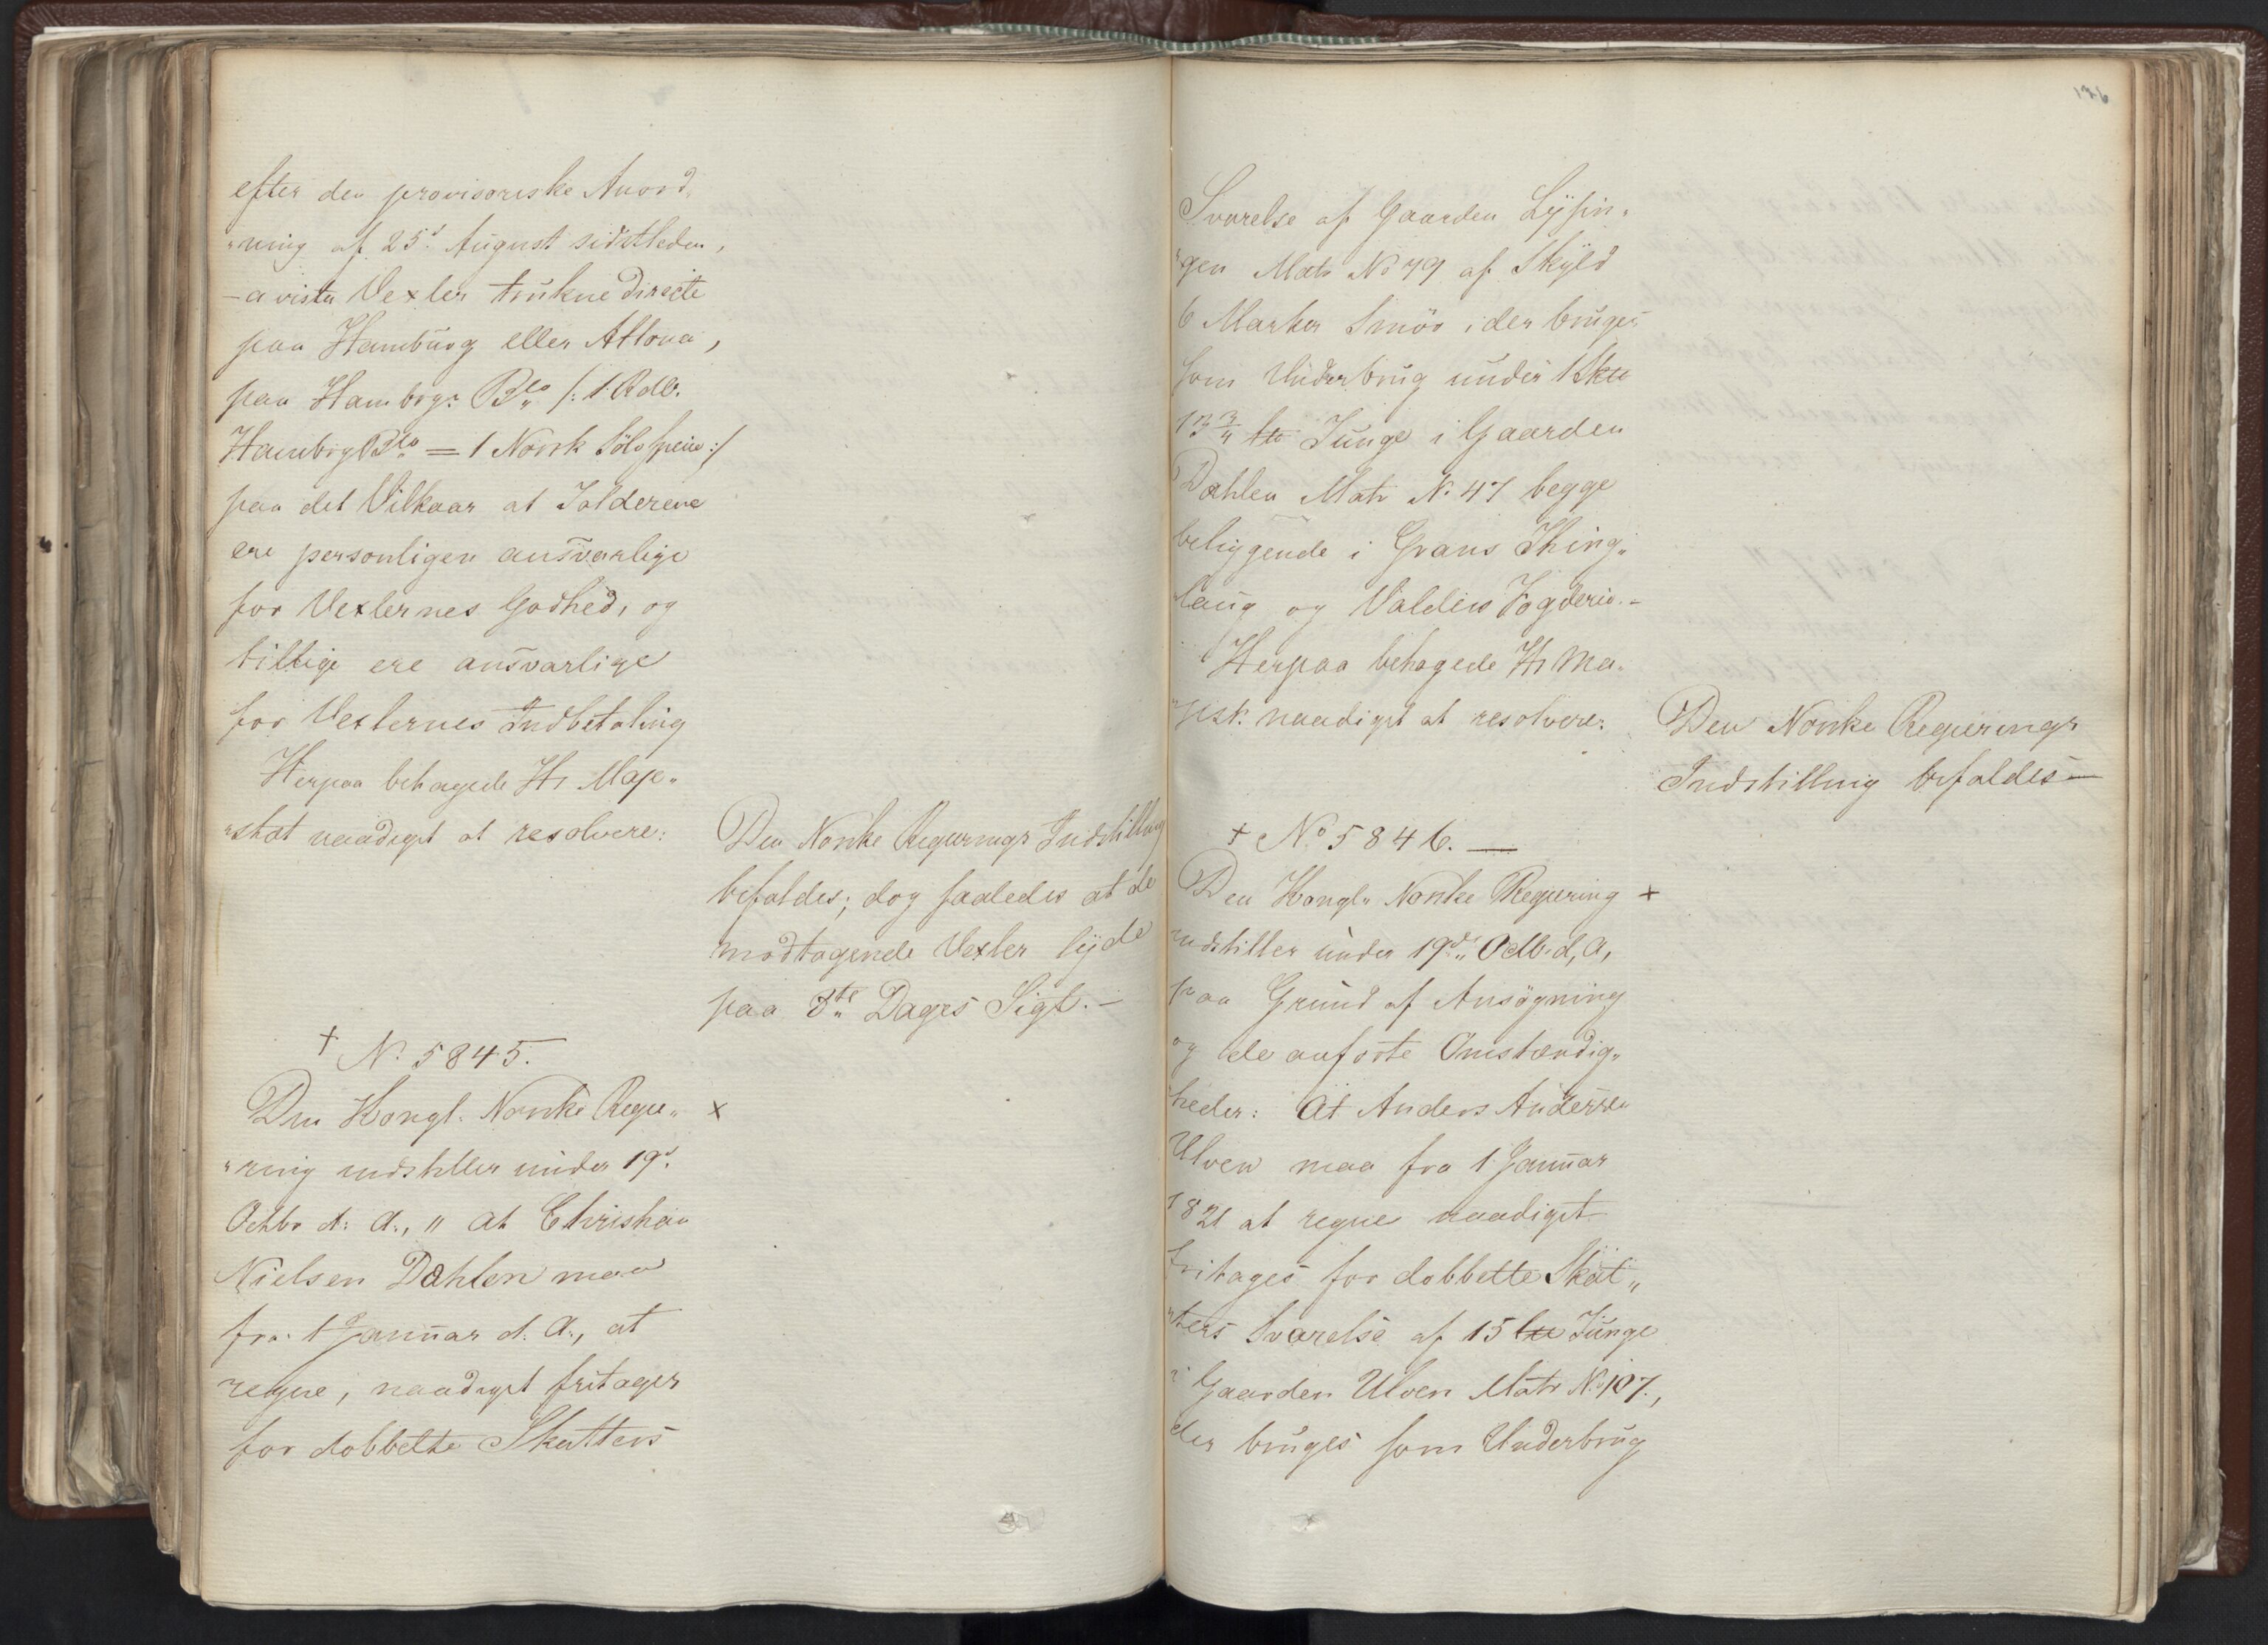 efter den provisoriske Anord„
„ning af 25d. August sidstleden,
- a vista Vexler trukne directe
paa Hamburg eller Altona,
paa Hambrgr Bco /: 1 Rdlr.
Hambrg Bco = 1 Norsk Sölvspecie :/
paa det Vilkaar at Tolderene
ere personligen ansvarlige
for Vexlernes Godhed, og
tillige ere ansvarlige
for Vexlernes Indbetaling
Herpaa behagede Hs Maje„
„stæt naadigst at resolvere:
Den Norske Regjerings Indstilling
bifaldes; dog saaledes at de
modtagende Vexler lÿde
paa 3te Dages Sigt. -
+ No. 5845.
Den Kongl. Norske Regje„ x
„ring indstiller under 19d.
Octbr d: A:, „ at Christian
Nielsen Dahlen maa
fra 1 Januar d. A:, at
regne, naadigst fritages
for dobbelte Skatters
Svarelse af Gaarden Lÿsin„
„gen Matr No 79 af Skÿld
6 Marker Smör, der bruges
som Underbrug under 1 Skte
13 3/4 Junge i Gaarden
Dahlen Matr No. 47 begge
beliggende i Grans Thing„
laug og Valders Fogderie. -
Herpaa behagede Hs Ma„
„jest: naadigst at resolvere:
Den Norske Regjerings
Indstilling bifaldes -
+ No 5846. -
Den Kongl. Norske Regjering x
indstiller under 19de Octbr. d, A,
paa Grund af Ansögning
og de anförte Omstændig„
heder: At Anders Anderssen
Ulven maa fra 1 Januar
1821 at regne naadigst
fritages for dobbelte Skat„
„ters Svarelse af 15 Junge
i Gaarden Ulven Matr No. 107.,
der bruges som Underbrug